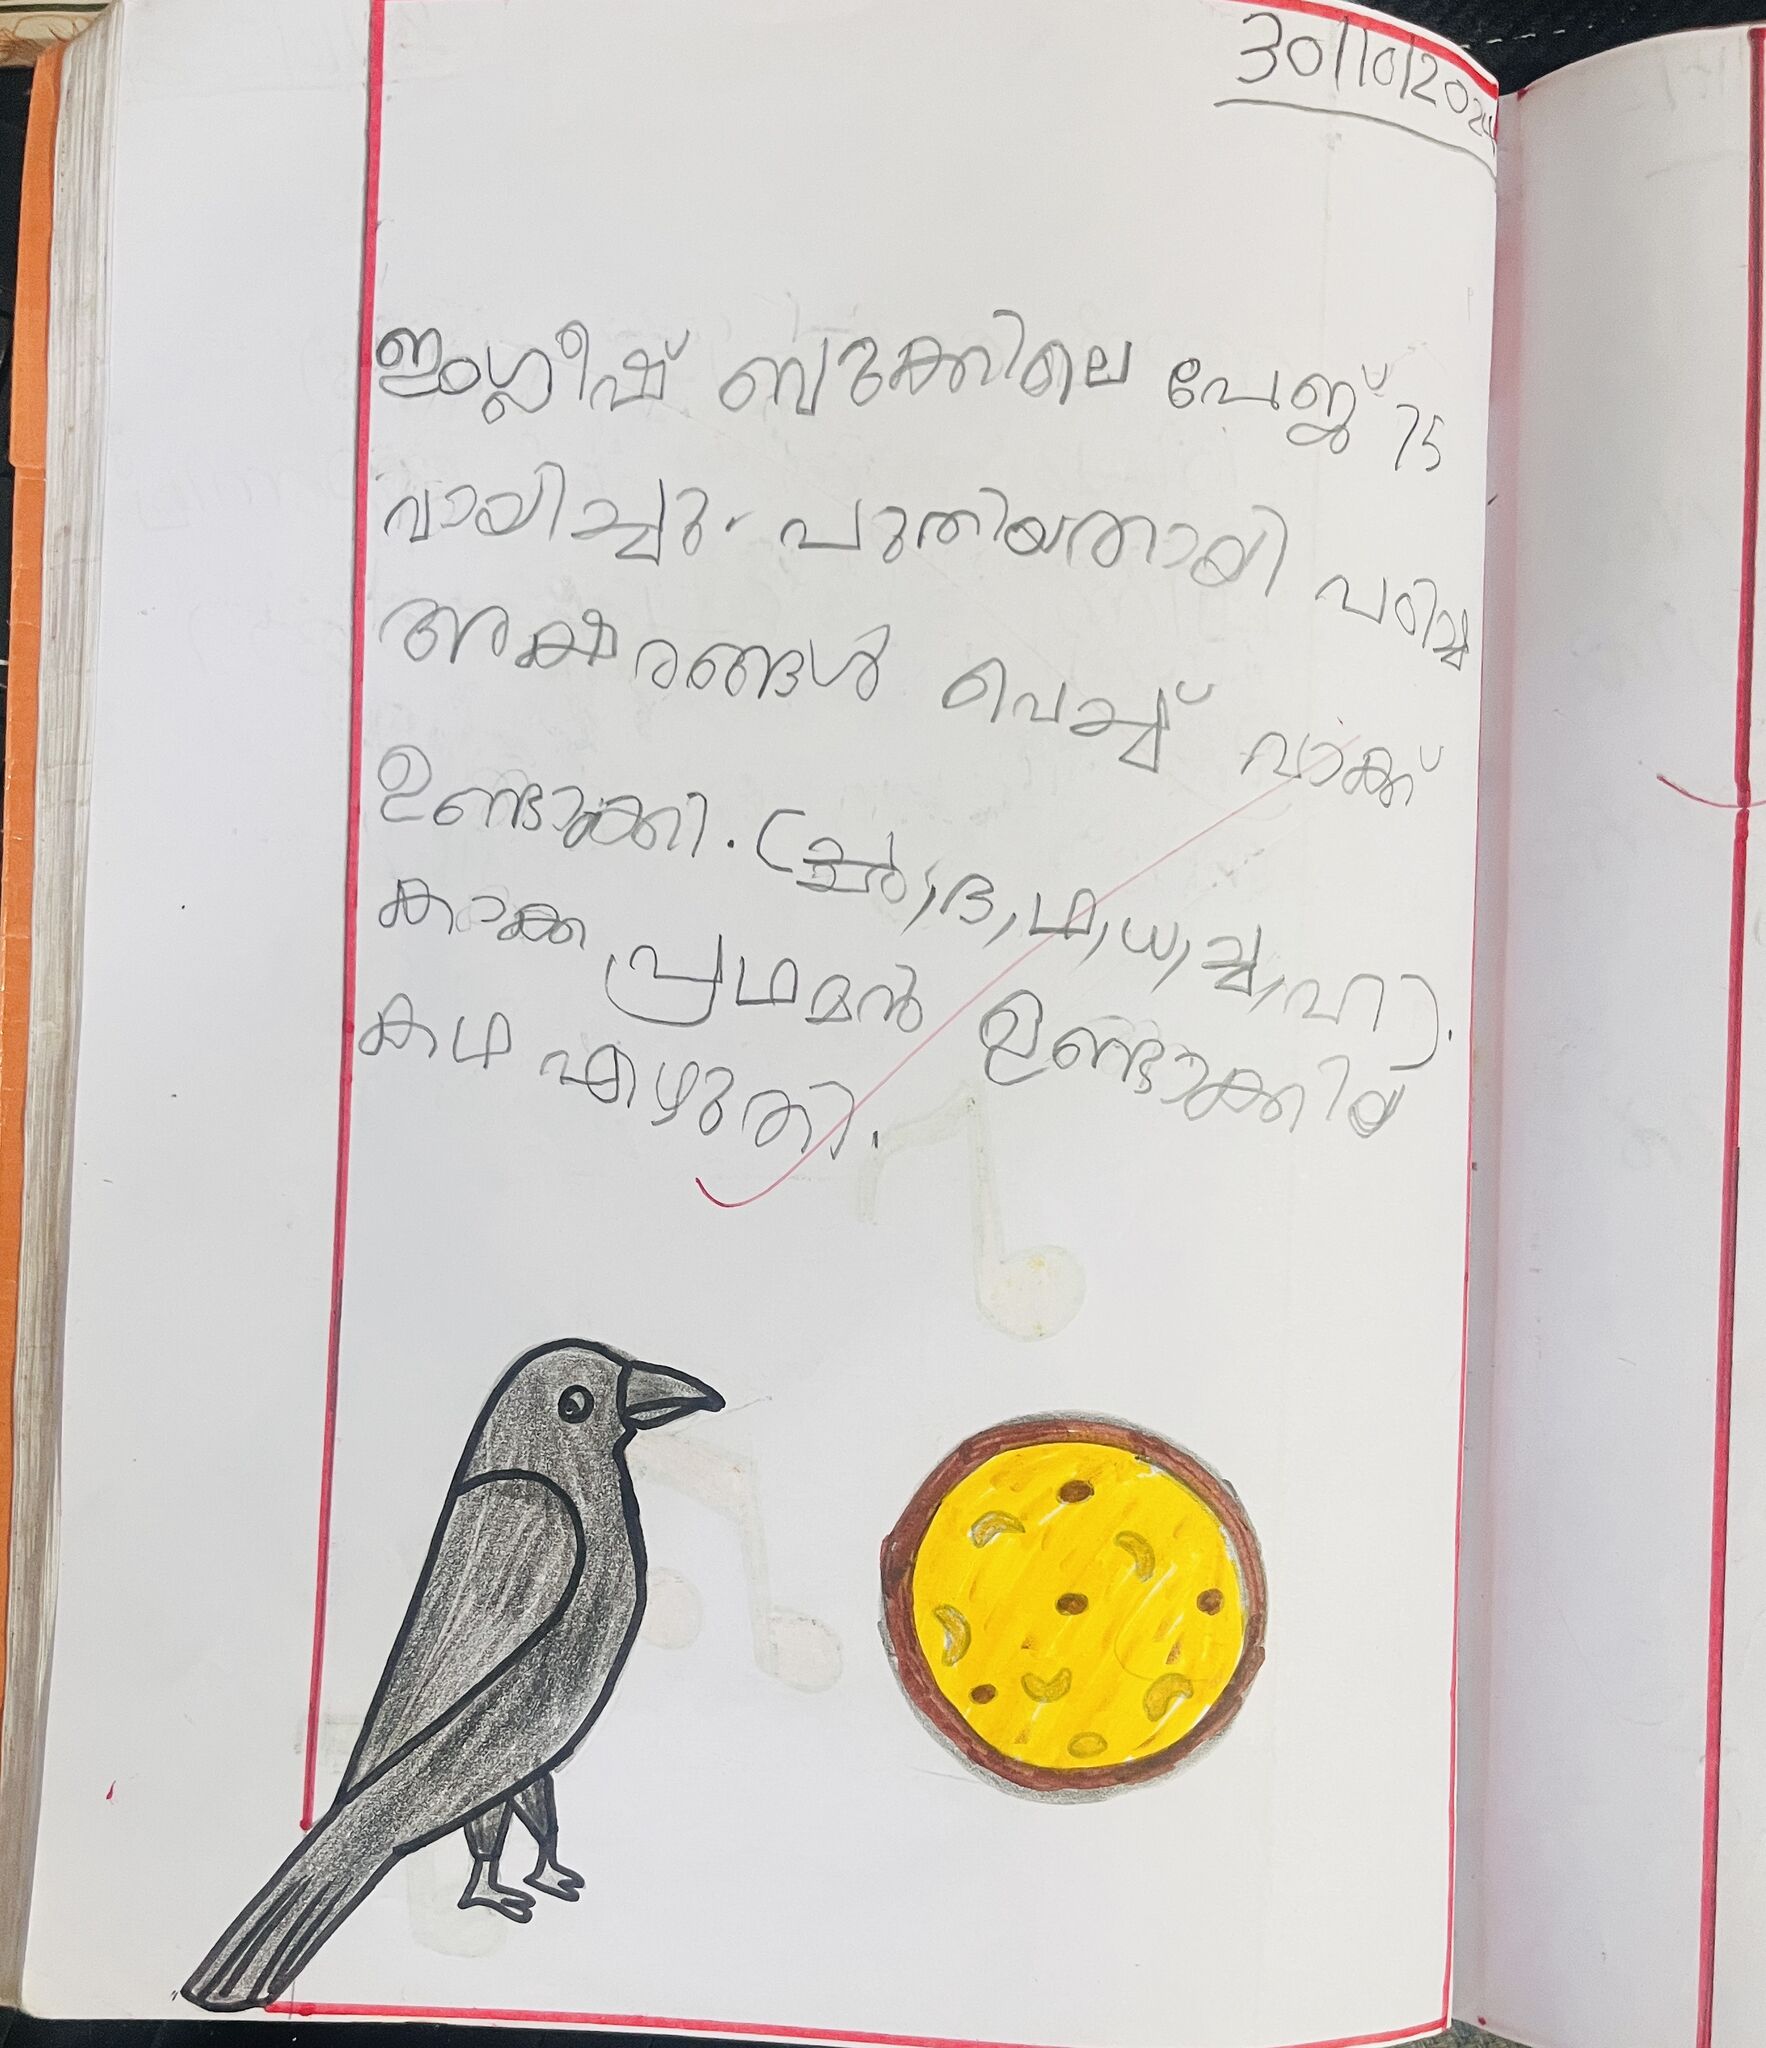 30/10/2024
ഇംഗ്ലീഷ് ബുക്കിലെ പേജ് 75
വായിച്ചു. പുതിയതായി പഠിച്ച
അക്ഷരങ്ങൾ വെച്ച് വാക്ക്
ഉണ്ടാക്കി. (ൽ, ദ, ഥ, ധ, ച്ച, ഹ).
കാക്ക പ്രഥമൻ ഉണ്ടാക്കിയ
കഥ എഴുതി.